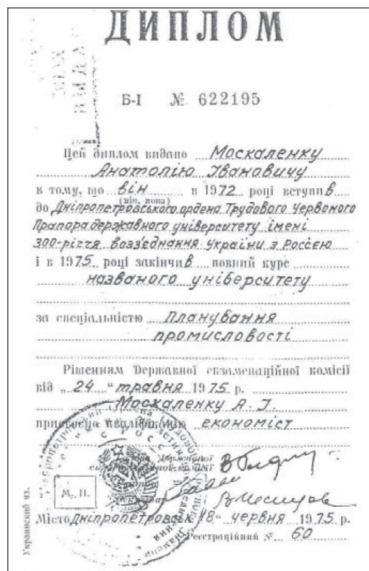 ДИПЛОМ
Б-І № 622195
Цей диплом видано Москаленку
Анатолію Івановичу
в тому, що він в 1972 році вступив
(він, вона)
до Дніпропетровського ордена Трудового Червоного
Прапора державного університету імені
300-річчя возз'єднання України з Россею
і в 1975 році закінчив повний курс
названого університету
за спеціальністю планування
промисловості
Рішенням Державної екзаменаційної комісії
від „24" травня 1975 р.
Москаленку А. І.
присвоєна кваліфікацію економіст
Державної
М. П.
Місто Дніпропетровськ 18 червня 1975 р.
Реєстраційний № 60
Украинский яз.